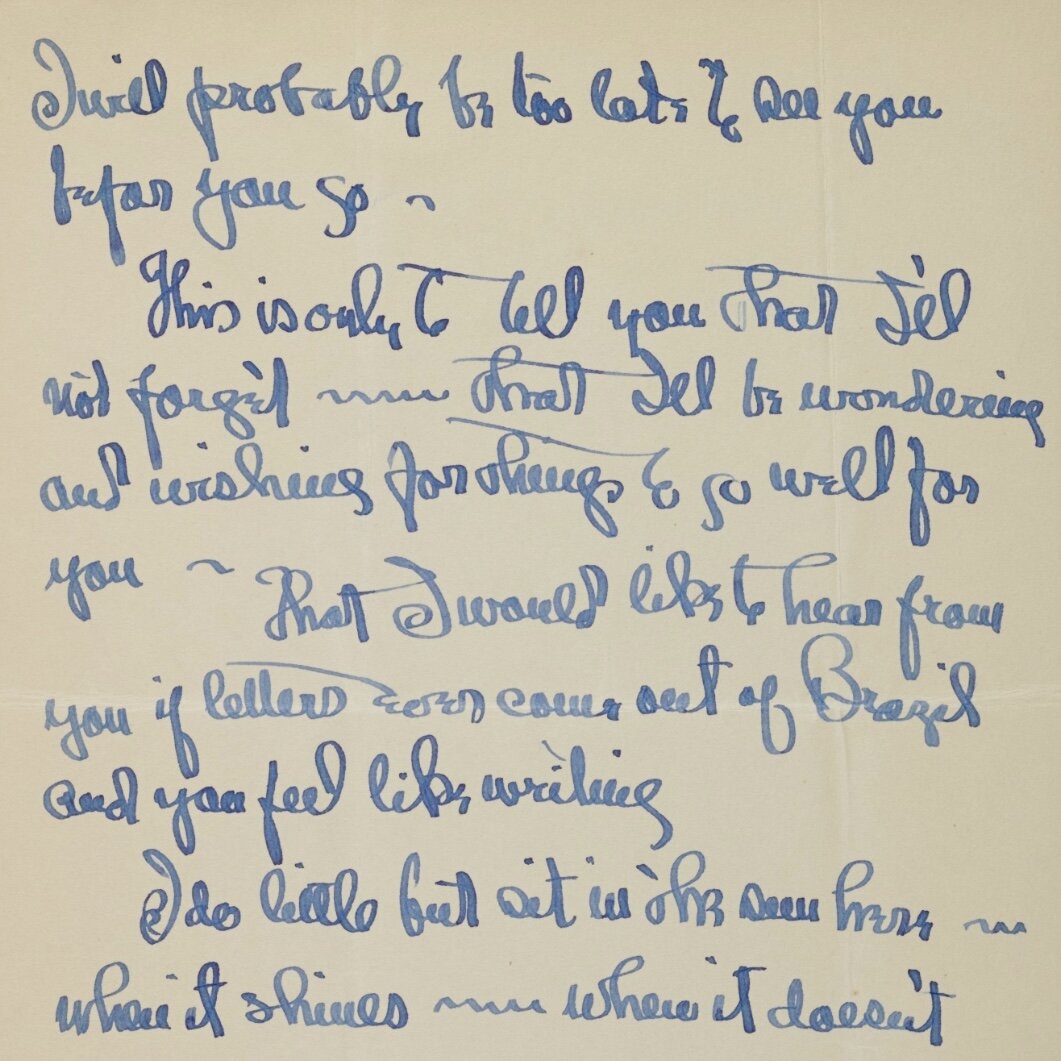 I will probably be too late to see you
before you go ~
This is only to tell you that I'll
not forget ~ that I'll be wondering
and wishing for things to go well for
you ~ That I would like to hear from
you if letters ever come out of Brazil
and you feel like writing
I do little but sit in the sun here ~
when it shines ~ when it doesn't